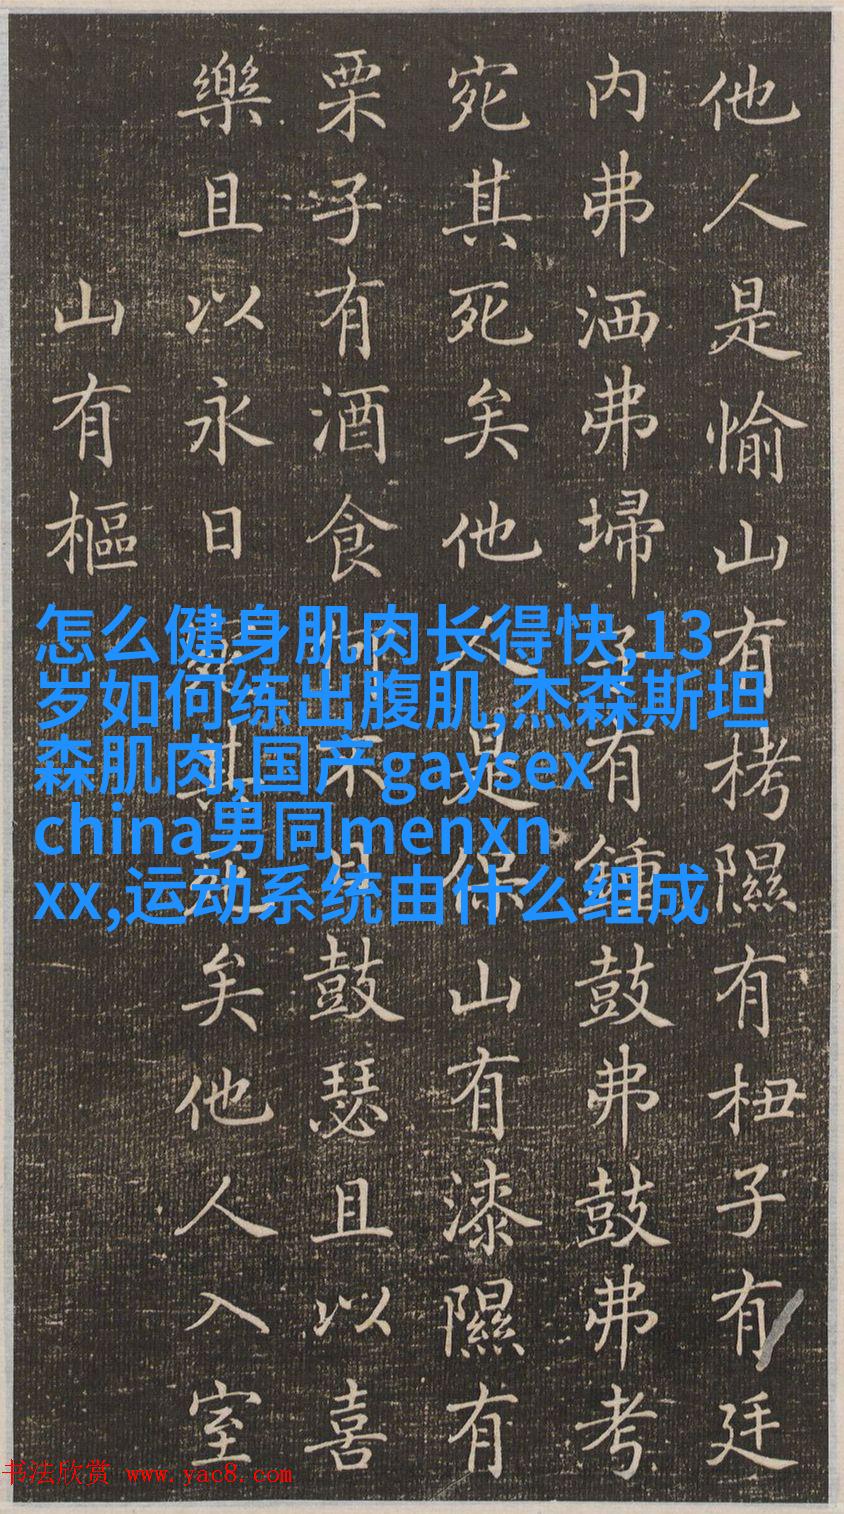 他人是愉山有栲隰有杻子有廷
内弗洒弗埽子有鍾鼓弗鼓弗考
宛其死矣他人是保山有漆隰有
栗子有酒食何不日鼓瑟且以喜
樂且以永日宛其死矣他人入室
山有樞
怎么健身肌肉长得快,13
岁如何练出腹肌,杰森斯坦
森肌肉,国产gaysex
china男同menxn
xx,运动系统由什么组成
书法欣赏 www.yac8.com